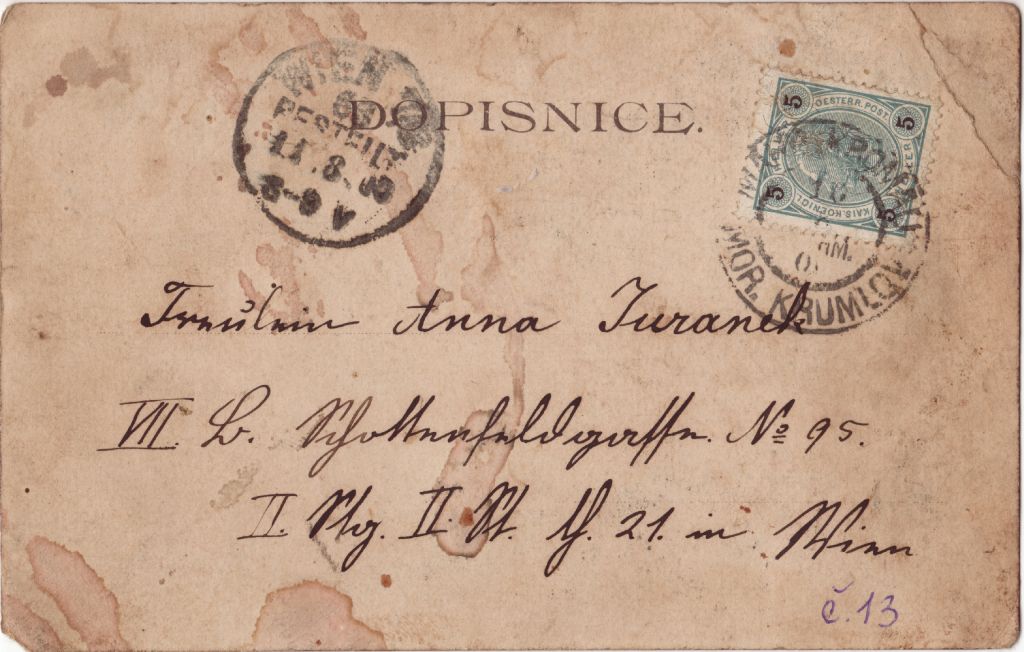 WIEN
BESTELLT
DOPISNICE.
5 OESTERR. POST. 5
5 KAIS. KOENIGL. 5
MOR. KRUMLOV
Fräulein Anna Juranek
VII. B. Schottenfeldgasse. No 95.
II. Stg. II. St. Th. 21. in Wien
č. 13